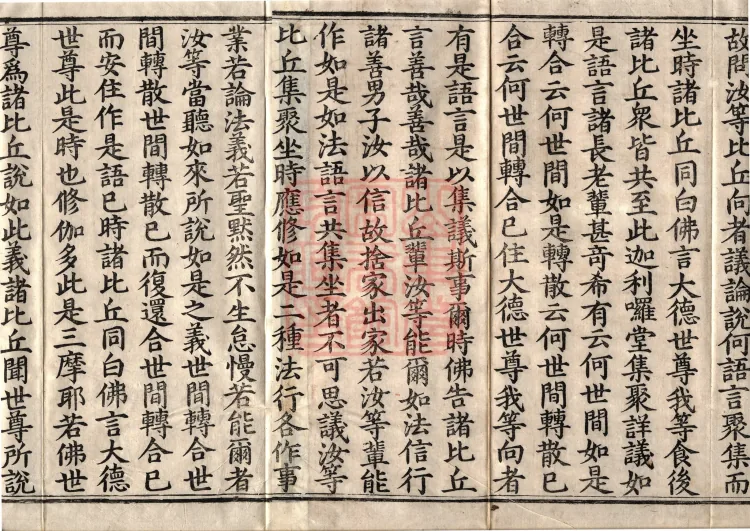 故問汝等比丘向者議論說何語言聚集而
坐時諸比丘同白佛言大德世尊我等食後
諸比丘衆皆共至此迦利囉堂集聚詳議如
是語言諸長老輩甚竒希有云何世間如是
轉合云何世間如是轉散云何世間轉散已
合云何世間轉合已住大德世尊我等向者
有是語言是以集議斯事爾時佛告諸比丘
言善哉善哉諸比丘輩汝等能爾如法信行
諸善男子汝以信故捨家出家若汝等輩能
作如是如法語言共集坐者不可思議汝等
比丘集聚坐時應修如是二種法行各作事
業若論法義若聖默然不生怠慢若能爾者
汝等當聽如來所說如是之義世間轉合世
間轉散世間轉散已而復還合世間轉合已
而安住作是語已時諸比丘同白佛言大德
世尊此是時也修伽多此是三摩耶若佛世
尊爲諸比丘說如此義諸比丘聞世尊所說